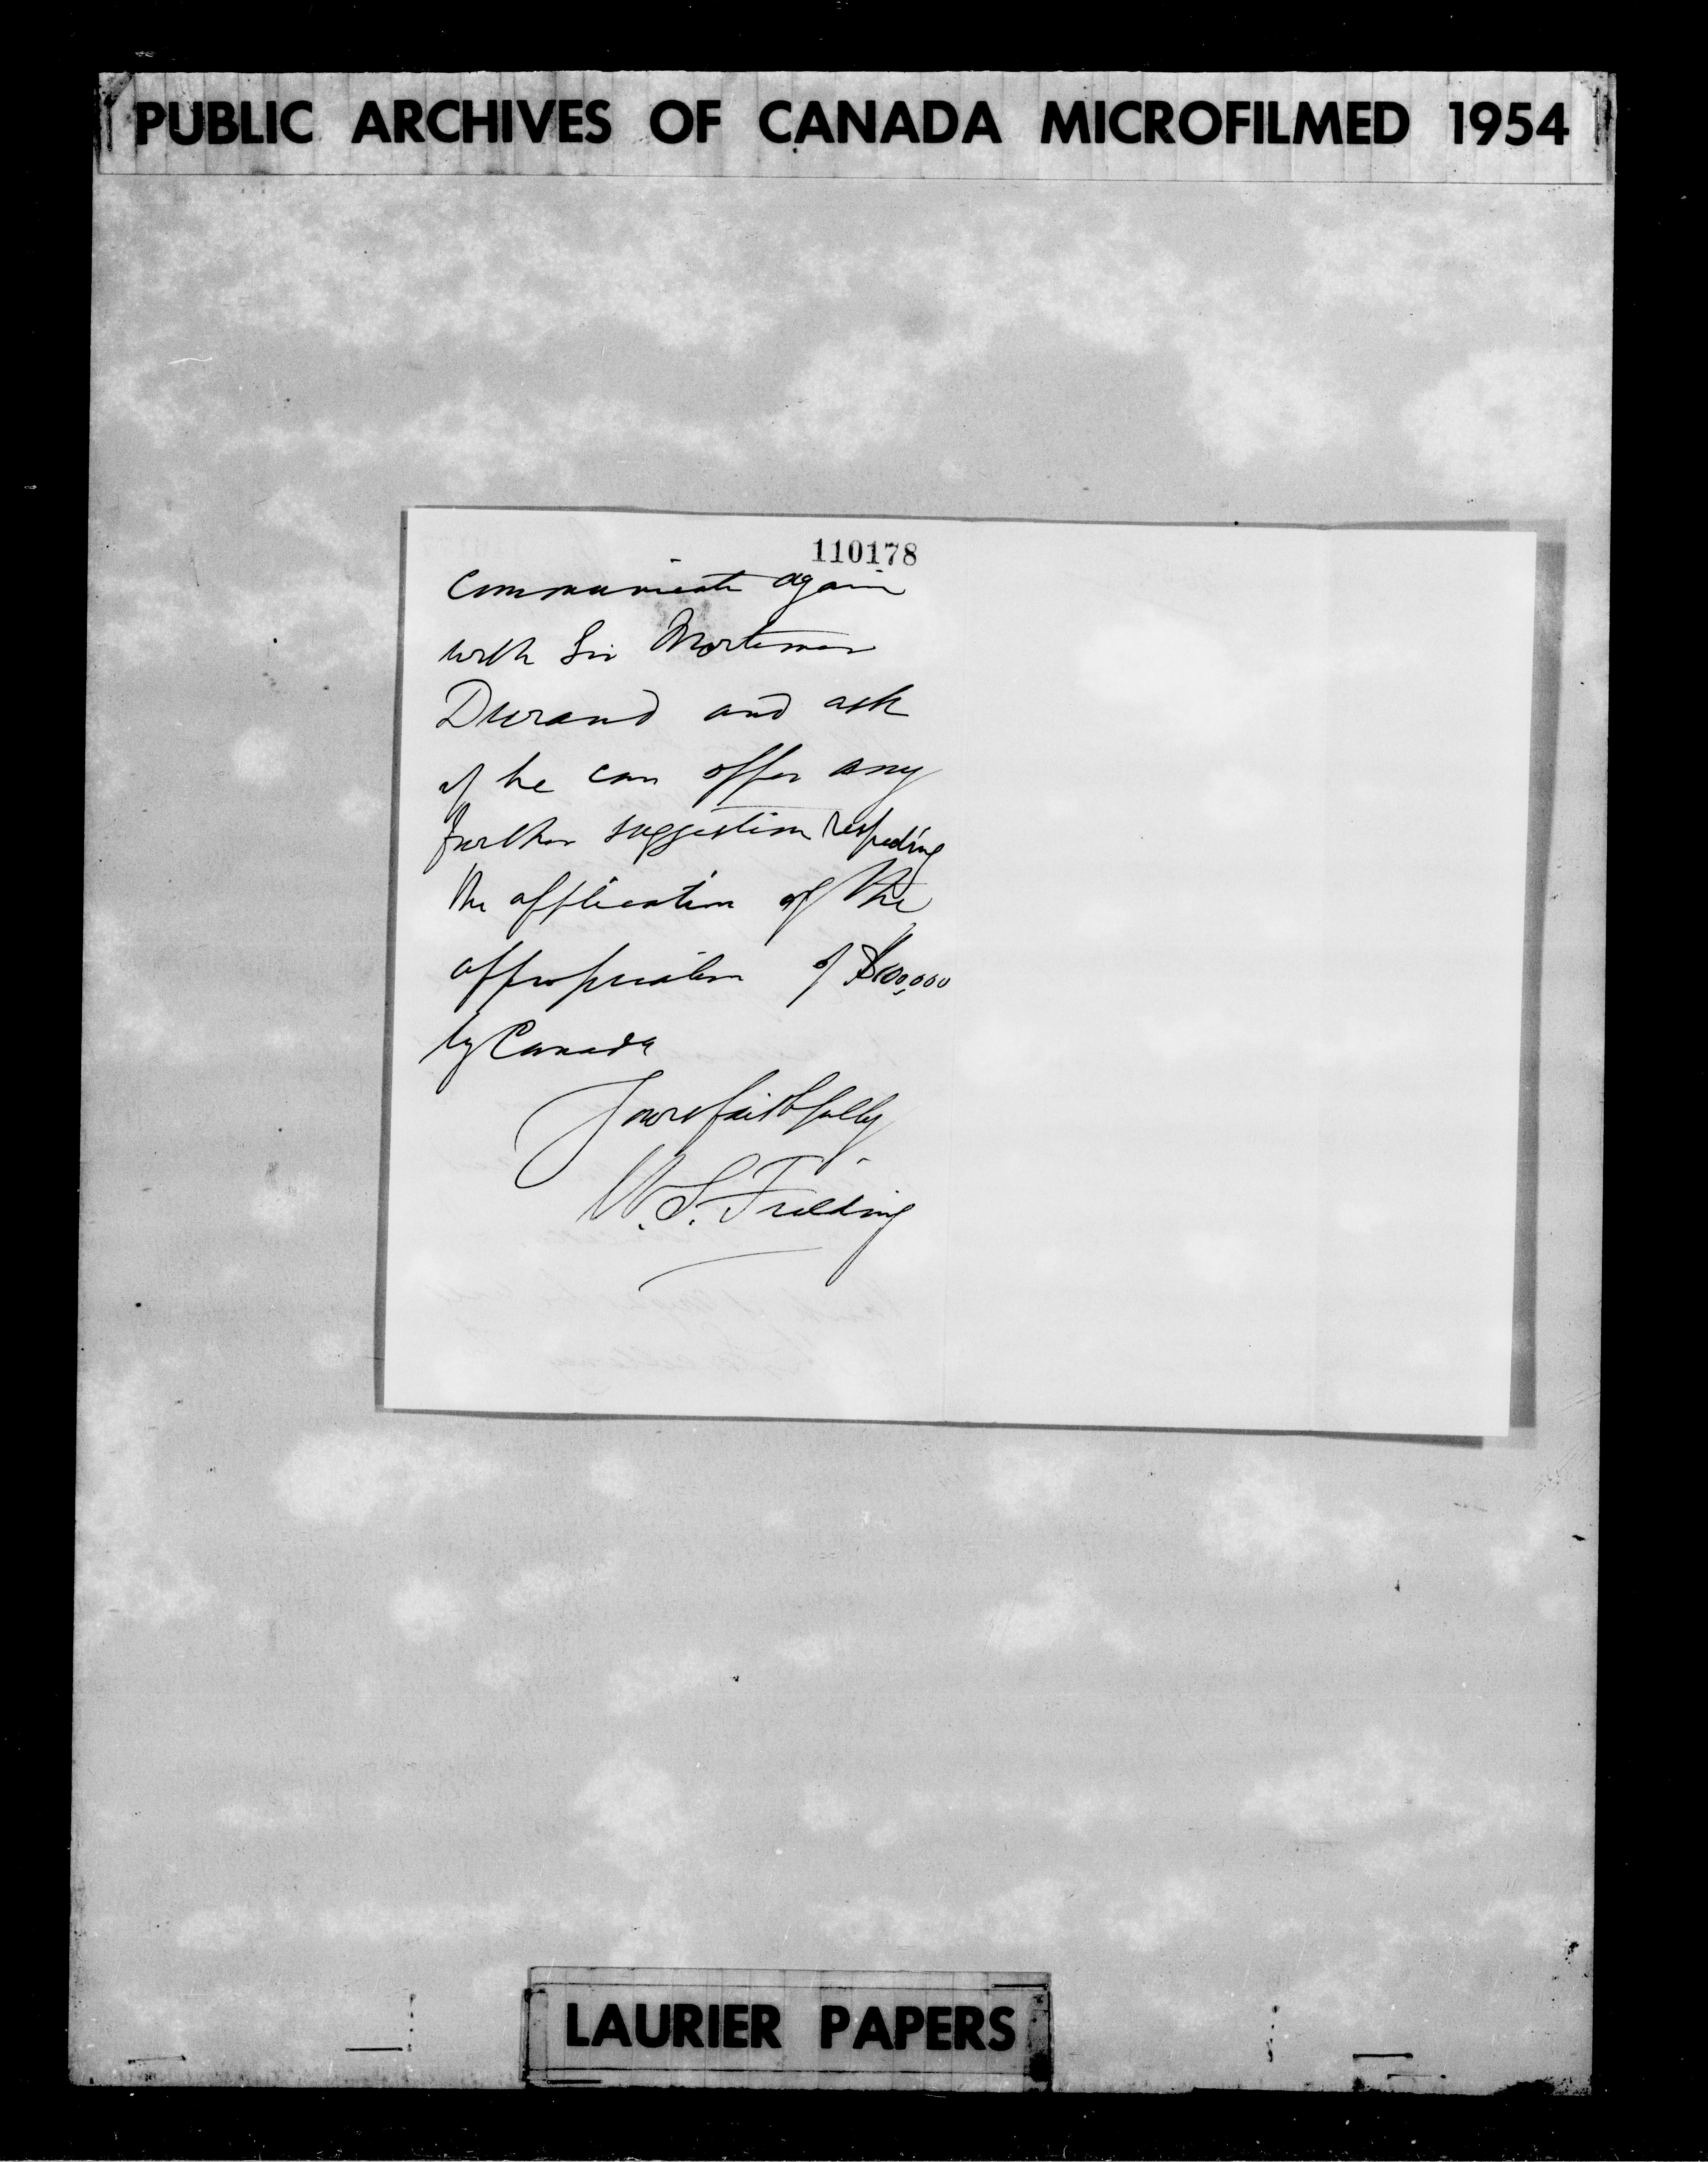 PUBLIC ARCHIVES OF CANADA MICROFILMED 1954
110178
communicate again
with Sir Mortimer
Durand and ask
if he can offer any
further suggestion respecting
the application of the
appropriation of $100,000
by Canada
Yours faithfully
W. S. Fielding
LAURIER PAPERS